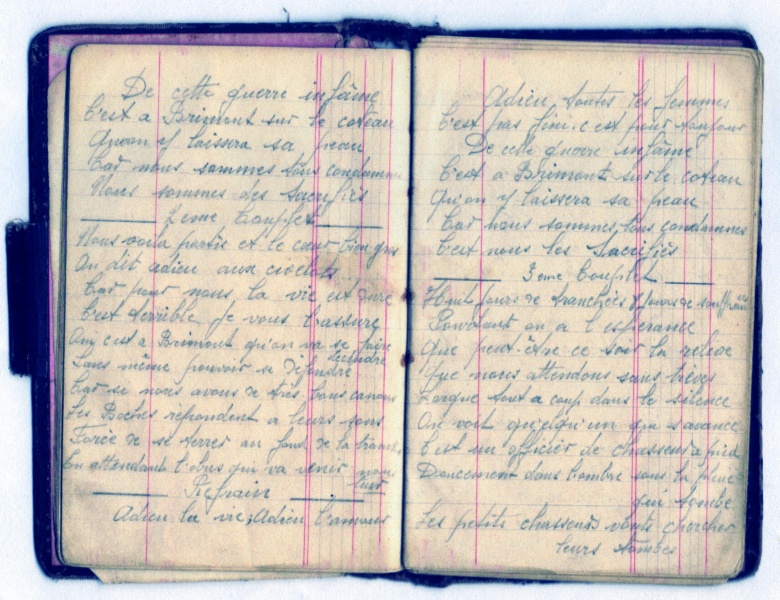 De cette guerre infâme
C'est a Brimont sur le coteau
Qu'on y laissera sa peau
Car nous sommes tous condamnes
Nous sommes des Sacrifiés
2eme Couplet
Nous voila partis et le cœur bien gros
On dit adieu aux
Car pour nous la vie est dure
C'est terrible je vous l'assure
Car c'est a Brimont qu'on va se faire
descendre
Sans même pouvoir se défendre
Car si nous avons de très bons canons
Les Boches répondent a leurs sons
Forcé de se terrer au fond de la tranchée
En attendant l'obus qui va venir nous
tuer
Refrain
Adieu la vie, Adieu l'amour
Adieu toutes les femmes
C'est pas fini c est pour toujour
De cette guerre infâme
C'est a Brimont sur le coteau
Qu'on y laissera sa peau
Car nous sommes tous condamnes
C'est nous les Sacrifiés
3eme Couplet
Huit jours de tranchées 8 jours de souffrance
Pourtant on a l'espérance
Que peut-être ce soir la relève
Que nous attendons sans trêves
Lorsque tout a coup dans le silence
On voit quelqu'un qui s'avance
C'est un officier de chasseurs a pied
Doucement dans l'ombre sous la pluie
qui tombe
Les petits chasseurs vont chercher
leurs tombes